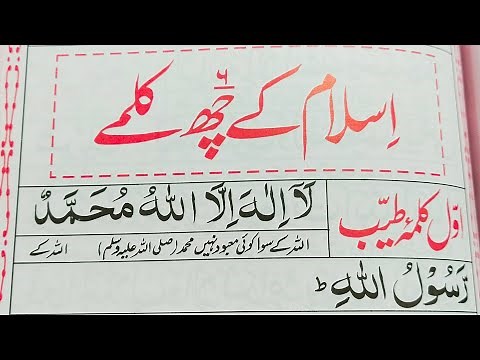 اِسلام کے چھ ۶ کلمے
اوّل کلمۂ طیّب
لَآ اِلٰهَ اِلَّا اللّٰهُ مُحَمَّدٌ
اللہ کے سوا کوئی معبود نہیں محمد (صلی اللہ علیہ وسلم) اللہ کے
رَّسُوْلُ اللّٰهِ ؕ